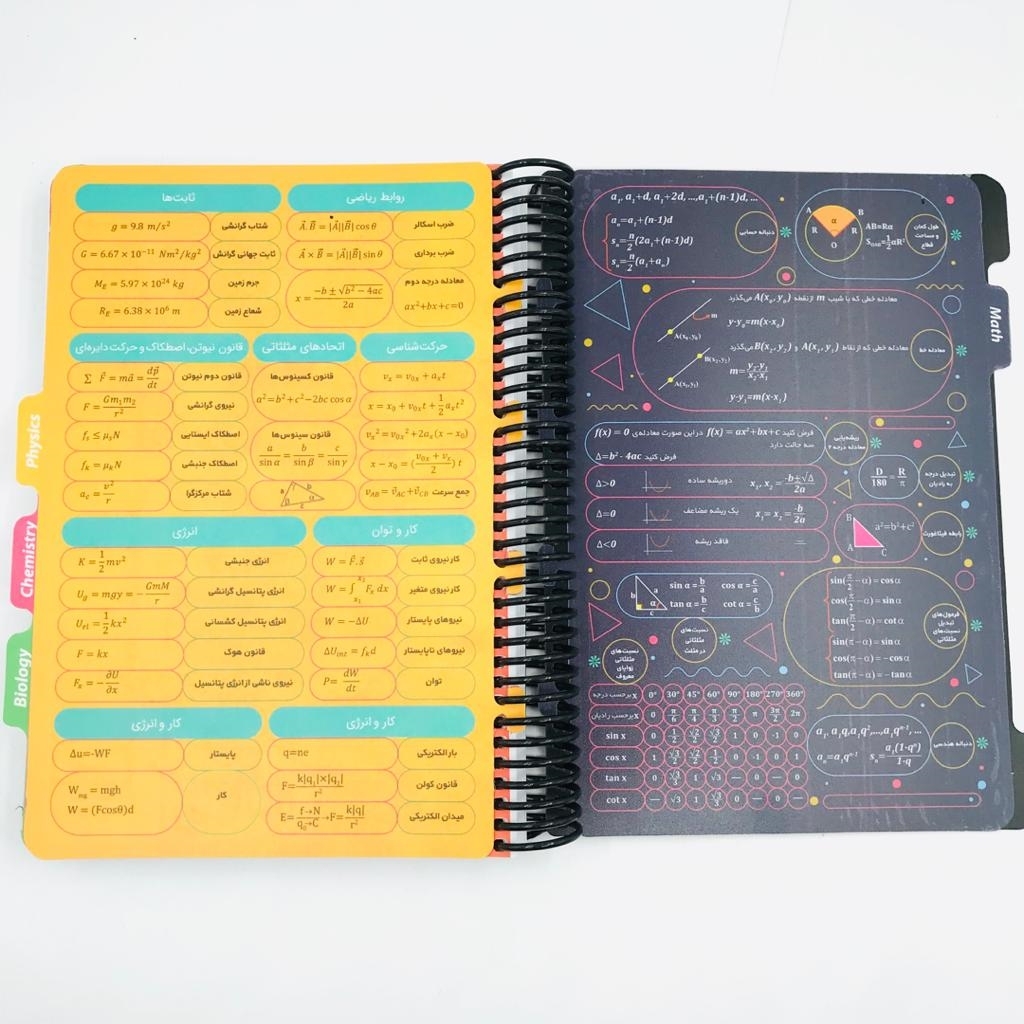 Physics
Chemistry
Biology
روابط ریاضی
ضرب اسکالر
A⃗.B⃗ = |A⃗||B⃗| cos θ
ضرب برداری
A⃗ × B⃗ = |A⃗||B⃗| sin θ
معادله درجه دوم
ax²+bx+c=0
x = (-b ± √(b² − 4ac)) / 2a
ثابت‌ها
شتاب گرانشی
g = 9.8 m/s²
ثابت جهانی گرانش
G = 6.67 × 10⁻¹¹ Nm²/kg²
جرم زمین
M_E = 5.97 × 10²⁴ kg
شعاع زمین
R_E = 6.38 × 10⁶ m
حرکت‌شناسی
vₓ = v₀ₓ + aₓt
x = x₀ + v₀ₓt + 1/2 aₓt²
vₓ² = v₀ₓ² + 2aₓ(x − x₀)
x − x₀ = ((v₀ₓ + vₓ)/2) t
جمع سرعت
v⃗_AB = v⃗_AC + v⃗_CB
اتحادهای مثلثاتی
قانون کسینوس‌ها
a²=b²+c²−2bc cos α
قانون سینوس‌ها
a/sin α = b/sin β = c/sin γ
قانون نیوتن، اصطکاک و حرکت دایره‌ای
قانون دوم نیوتن
∑ F⃗ = ma⃗ = dp⃗/dt
نیروی گرانشی
F = Gm₁m₂/r²
اصطکاک ایستایی
fₛ ≤ μₛN
اصطکاک جنبشی
f_k = μ_kN
شتاب مرکزگرا
a_c = v²/r
کار و توان
کار نیروی ثابت
W = F⃗.s⃗
کار نیروی متغیر
W = ∫ Fₓ dx
نیروهای پایستار
W = −ΔU
نیروهای ناپایستار
ΔU_int = f_k d
توان
P= dW/dt
انرژی
انرژی جنبشی
K = 1/2 mv²
انرژی پتانسیل گرانشی
U_g = mgy = −GmM/r
انرژی پتانسیل کشسانی
U_el = 1/2 kx²
قانون هوک
F = kx
نیروی ناشی از انرژی پتانسیل
Fₓ = −∂U/∂x
کار و انرژی
بار الکتریکی
q=ne
قانون کولن
F= k|q₁|×|q₂|/r²
میدان الکتریکی
E= f→N/q₀→C →F= k|q|/r²
کار و انرژی
پایستار
Δu=-WF
کار
W_mg = mgh
W = (Fcosθ)d
Math
a₁, a₁+d, a₁+2d, ...,a₁+(n-1)d, ...
aₙ=a₁+(n-1)d
sₙ=n/2(2a₁+(n-1)d)
sₙ=n/2(a₁+aₙ)
دنباله حسابی
A B
α
R R
O
AB=Rα
S_OAB=1/2αR²
طول کمان و مساحت قطاع
معادله خطی که با شیب m از نقطه A(x₀, y₀) می‌گذرد
m
A(x₀,y₀)
y-y₀=m(x-x₀)
معادله خط
معادله خطی که از نقاط A(x₁, y₁) و B(x₂, y₂) می‌گذرد
B(x₂,y₂)
A(x₁,y₁)
m= y₂-y₁/x₂-x₁
y-y₁=m(x-x₁)
فرض کنید f(x) = ax²+bx+c در این صورت معادله‌ی f(x) = 0 سه حالت دارد
فرض کنید Δ=b²- 4ac
ریشه‌یابی معادله درجه ۲
Δ>0
دو ریشه ساده
x₁, x₂ = -b±√Δ/2a
Δ=0
یک ریشه مضاعف
x₁ = x₂ = -b/2a
Δ<0
فاقد ریشه
D/180 = R/π
تبدیل درجه به رادیان
B
A C
a²=b²+c²
رابطه فیثاغورث
b a
α
c
sin α = b/a cos α= c/a
tan α = b/c cot α= c/b
نسبت‌های مثلثاتی در مثلث
نسبت‌های مثلثاتی زوایای معروف
sin(π/2 − α) = cosα
cos(π/2 − α) = sinα
tan(π/2 − α) = cotα
sin(π − α) = sinα
cos(π − α) = − cosα
tan(π − α) = − tanα
فرمول‌های تبدیل نسبت‌های مثلثاتی
x برحسب درجه 0° 30° 45° 60° 90° 180° 270° 360°
x برحسب رادیان 0 π/6 π/4 π/3 π/2 π 3π/2 2π
sin x 0 1/2 √2/2 √3/2 1 0 -1 0
cos x 1 √3/2 √2/2 1/2 0 -1 0 1
tan x 0 √3/3 1 √3 — 0 — 0
cot x — √3 1 √3/3 0 — 0 —
a₁, a₁q,a₁q²,...,a₁qⁿ⁻¹, ...
aₙ=a₁qⁿ⁻¹ sₙ= a₁(1-qⁿ)/1-q
دنباله هندسی